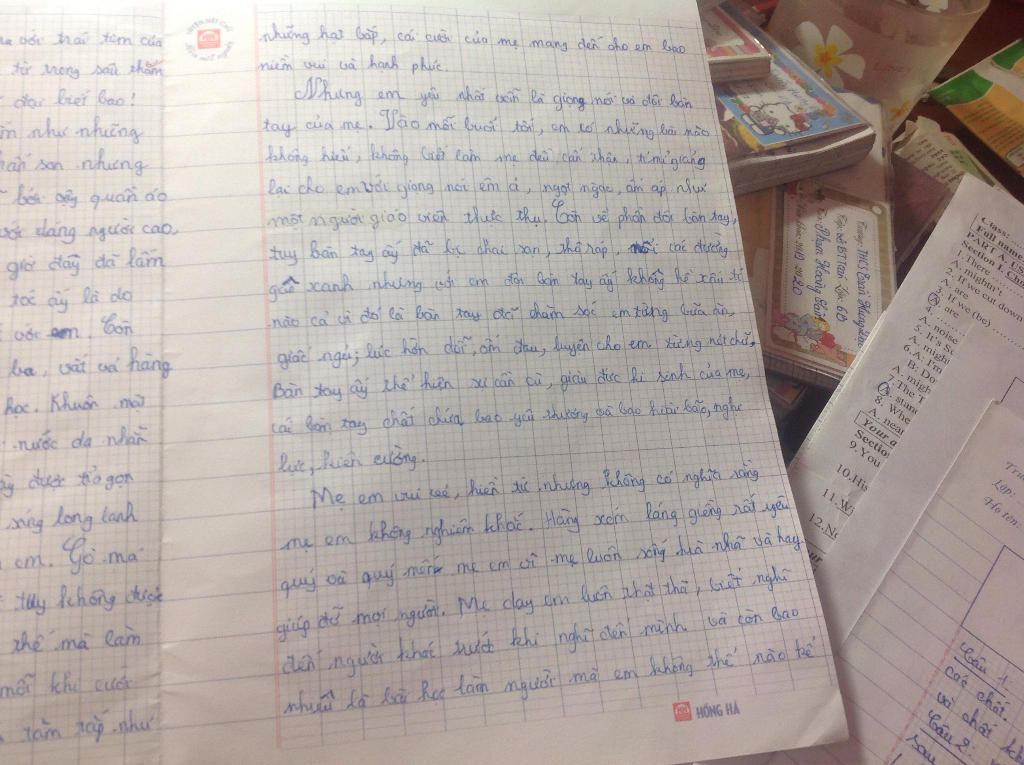 với trái tim của
từ trong sâu thẳm
đặc biệt bao!
như những
son nhưng
bóc vảy quần áo
vóc dáng người cao,
giờ đây đã lấm
tóc ấy là do
với em. Còn
ba, vất vả hàng
học. Khuôn mặt
nước da nhăn
được tỏ gọn
long lanh
em. Gò má
tuy không được
thế mà làm
mỗi khi cười
tăm tắp như
những hạt bắp, cái cười của mẹ mang đến cho em bao
niềm vui và hạnh phúc.
Nhưng em yêu nhất vẫn là giọng nói và đôi bàn
tay của mẹ. Vào mỗi buổi tối, em có những bài nào
không hiểu, không biết làm mẹ đều cẩn thận, tỉ mỉ giảng
lại cho em với giọng nói êm ả, ngọt ngào, ấm áp như
một người giáo viên thực thụ. Còn về phần đôi bàn tay,
tuy bàn tay ấy đã bị chai sạn, thô ráp, nổi các đường
gân xanh nhưng với em đôi bàn tay ấy không hề xấu tí
nào cả vì đó là bàn tay đã chăm sóc em từng bữa ăn,
giấc ngủ; lúc hờn dỗi, ốm đau, luyện cho em từng nét chữ.
Bàn tay ấy thể hiện sự cần cù, giàu đức hi sinh của mẹ,
cái bàn tay chất chứa bao yêu thương và bao hoài bão, nghị
lực, kiên cường.
Mẹ em vui vẻ, hiền từ nhưng không có nghĩa rằng
mẹ em không nghiêm khắc. Hàng xóm láng giềng rất yêu
quý và quý mến mẹ em vì mẹ luôn sống hoà nhã và hay
giúp đỡ mọi người. Mẹ dạy em luôn thật thà, biết nghĩ
đến người khác trước khi nghĩ đến mình và còn bao
nhiêu là bài học làm người mà em không thể nào kể
HỒNG HÀ
Trường: THCS
Class:
Full name
PART A. US
Section I. Ch
1. There
A. mighty
2. If we cut down
A. are
3. If we (be)
A. are
4.
A. noise
5. It's S
A. migh
6. A. I'm
B: Do
A. migh
7. The T
A. stand
8. Whe
A. near
Your a
Sectio
9. You
10. His
11. W
12. N
Lớp:
Họ tên:
Câu 1:
các chất.
và chất kh
Câu 2:
sau